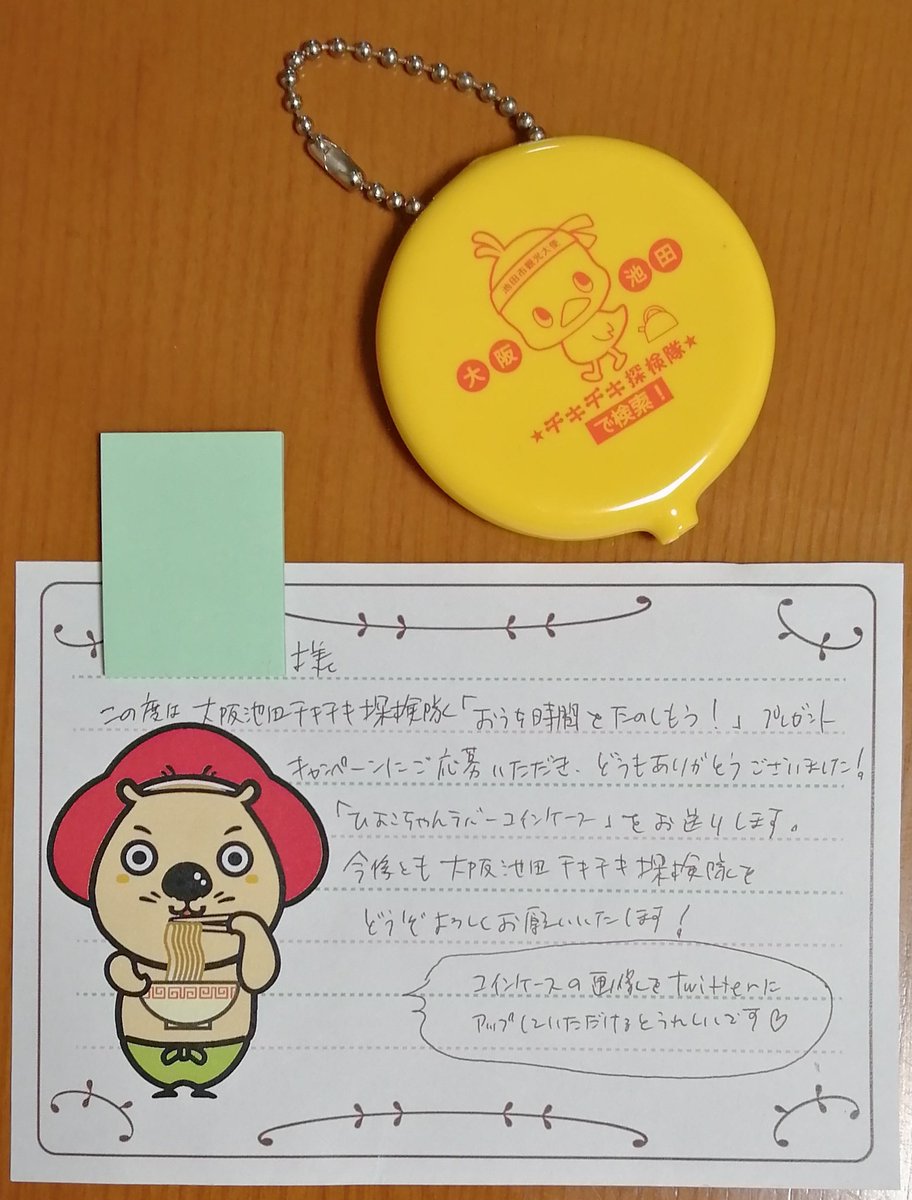 池田市観光大使
大阪
池田
★チキチキ探検隊★
で検索!
様
この度は大阪池田チキチキ探検隊「おうち時間をたのしもう!」プレゼント
キャンペーンにご応募いただき、どうもありがとうございました!
「ひよこちゃんラバーコインケース」をお送りします。
今後とも大阪池田チキチキ探検隊を
どうぞよろしくお願いいたします!
コインケースの画像をtwitterに
アップしていただけるとうれしいです♡